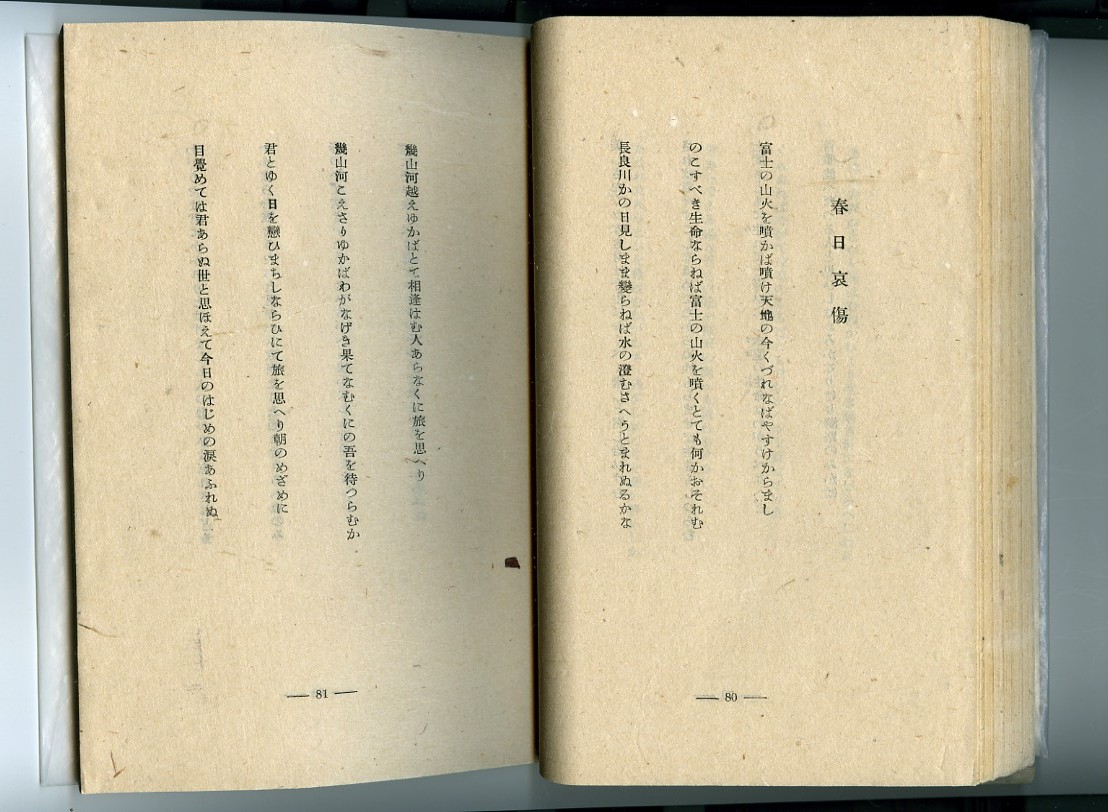 春日哀傷
富士の山火を噴かば噴け天地の今くづれなばやすけからまし
のこすべき生命ならねば富士の山火を噴くとても何かおそれむ
長良川かの日見しまま變らねば水の澄むさへうとまれぬるかな
— 80 —
幾山河越えゆかばとて相逢はむ人あらなくに旅を思へり
幾山河こえさりゆかばわがなげき果てなむくにの吾を待つらむか
君とゆく日を戀ひまちしならひにて旅を思へり朝のめざめに
目覺めては君あらぬ世と思ほえて今日のはじめの涙あふれぬ
— 81 —